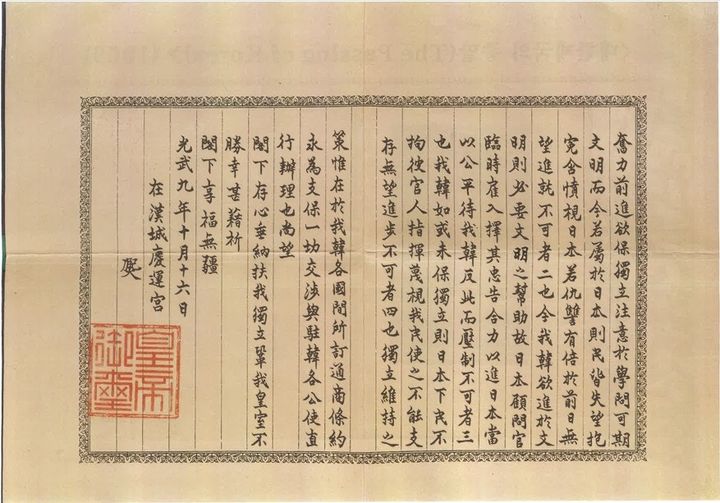 奮力前進欲保獨立注意於學問可期
文明而今若屬於日本則民皆失望抱
寃含憤視日本若仇讐有倍於前日無
望進就不可者二也今我韓欲進於文
明則必要文明之幇助故日本顧問官
臨時雇入擇其忠告合力以進日本當
以公平待我韓反此而壓制不可者三
也我韓如或未保獨立則日本下民不
拘使官人指揮蔑視我民使之不能支
存無望進步不可者四也獨立維持之
策惟在於我韓各國間所訂通商條約
永為支保一切交涉與駐韓各公使直
行辦理也尚望
閣下存心垂納扶我獨立鞏我皇室不
勝幸甚藉祈
閣下享福無疆
光武九年十月十六日
在漢城慶運宮
皇帝御璽